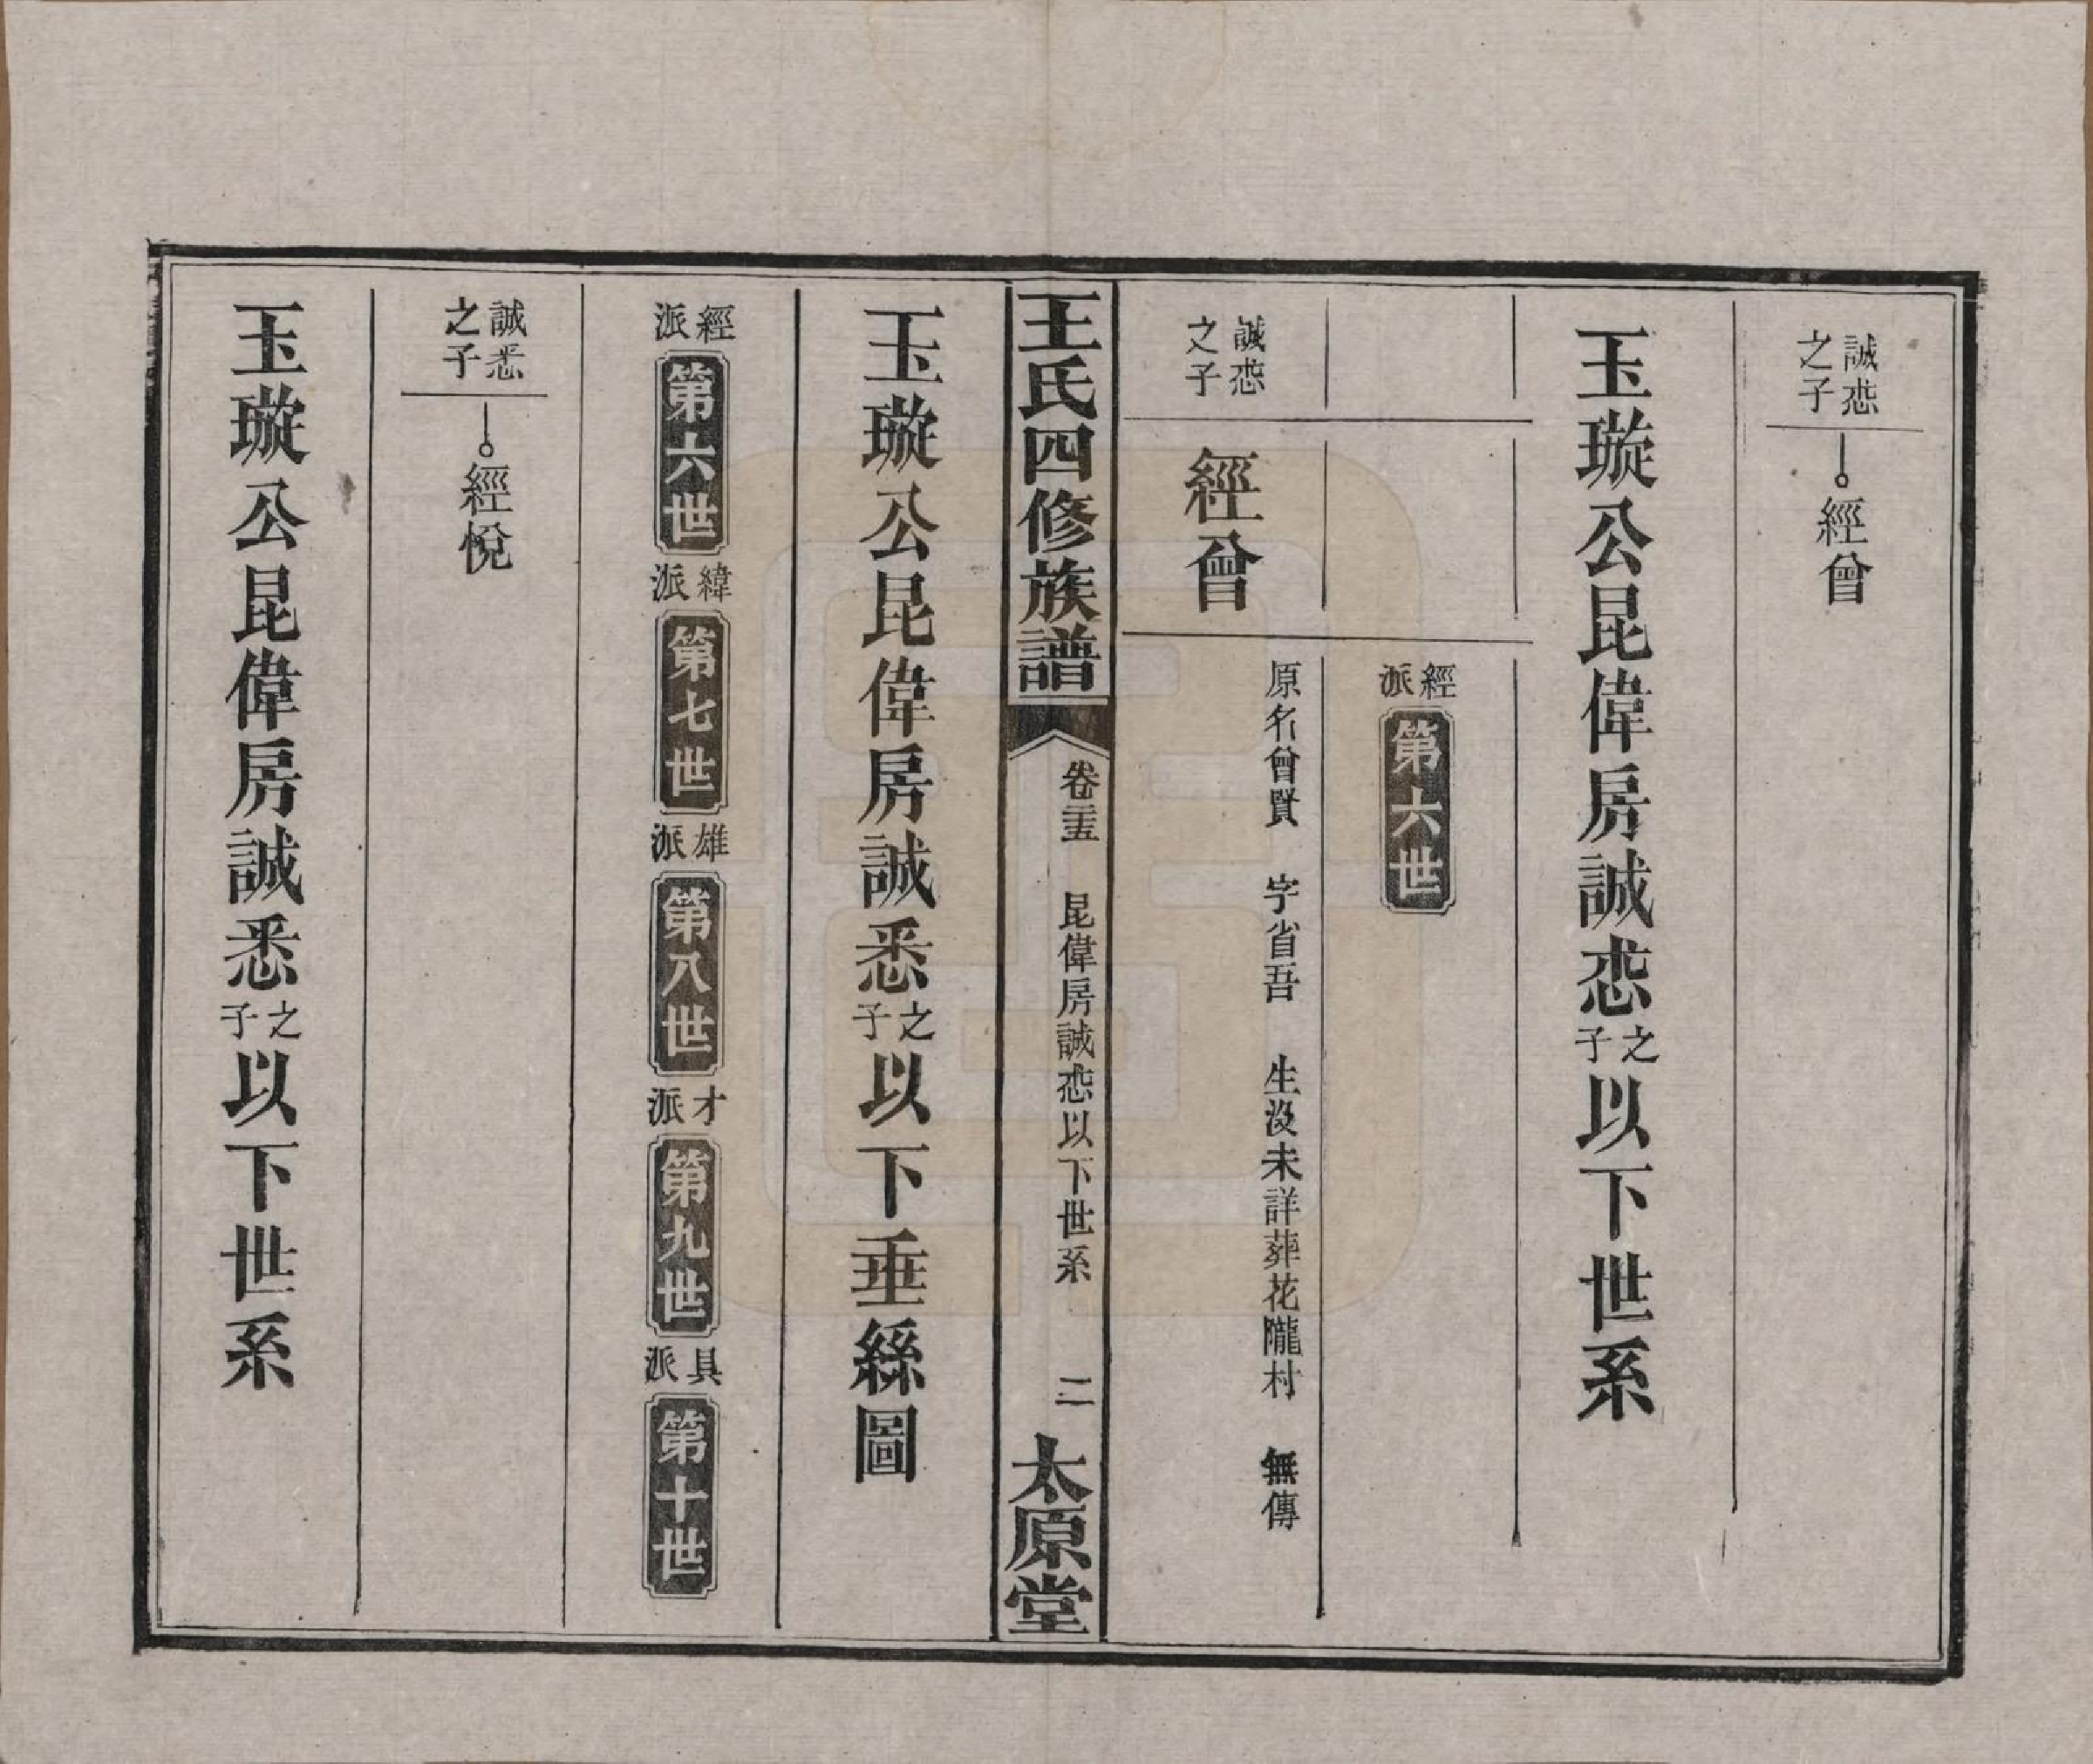 誠恋之子 經曾
玉璇公昆偉房誠恋之子以下世系
經派 第六世
誠恋之子 經曾 原名曾賢 字省吾 生沒未詳葬花隴村 無傳
王氏四修族譜 卷三十五 昆偉房誠恋以下世系 二 太原堂
玉璇公昆偉房誠悉之子以下垂絲圖
經派 第六世 緯派 第七世 雄派 第八世 才派 第九世 具派 第十世
誠悉之子 經悅
玉璇公昆偉房誠悉之子以下世系